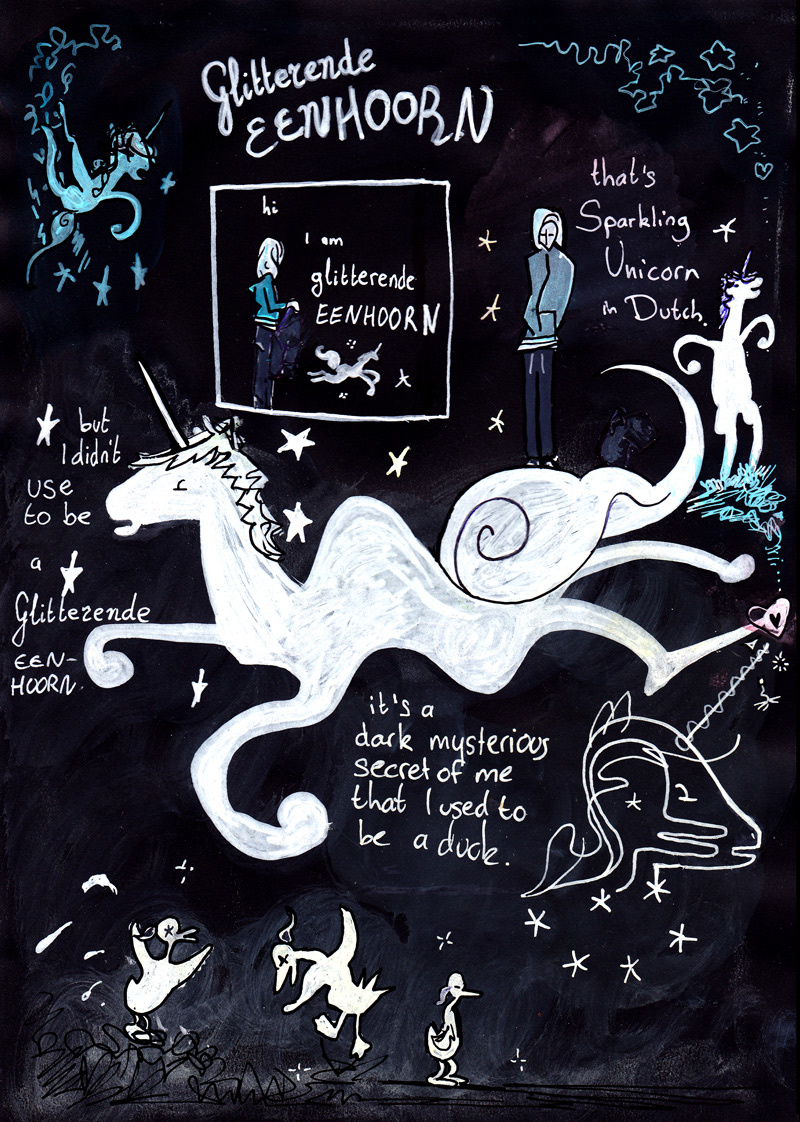 Glitterende
EENHOORN
hi
I am
glitterende
EENHOORN
that's
Sparkling
Unicorn
in Dutch.
but
I didn't
use
to be
a
Glitterende
EEN-
HOORN.
it's a
dark mysterious
secret of me
that I used to
be a duck.